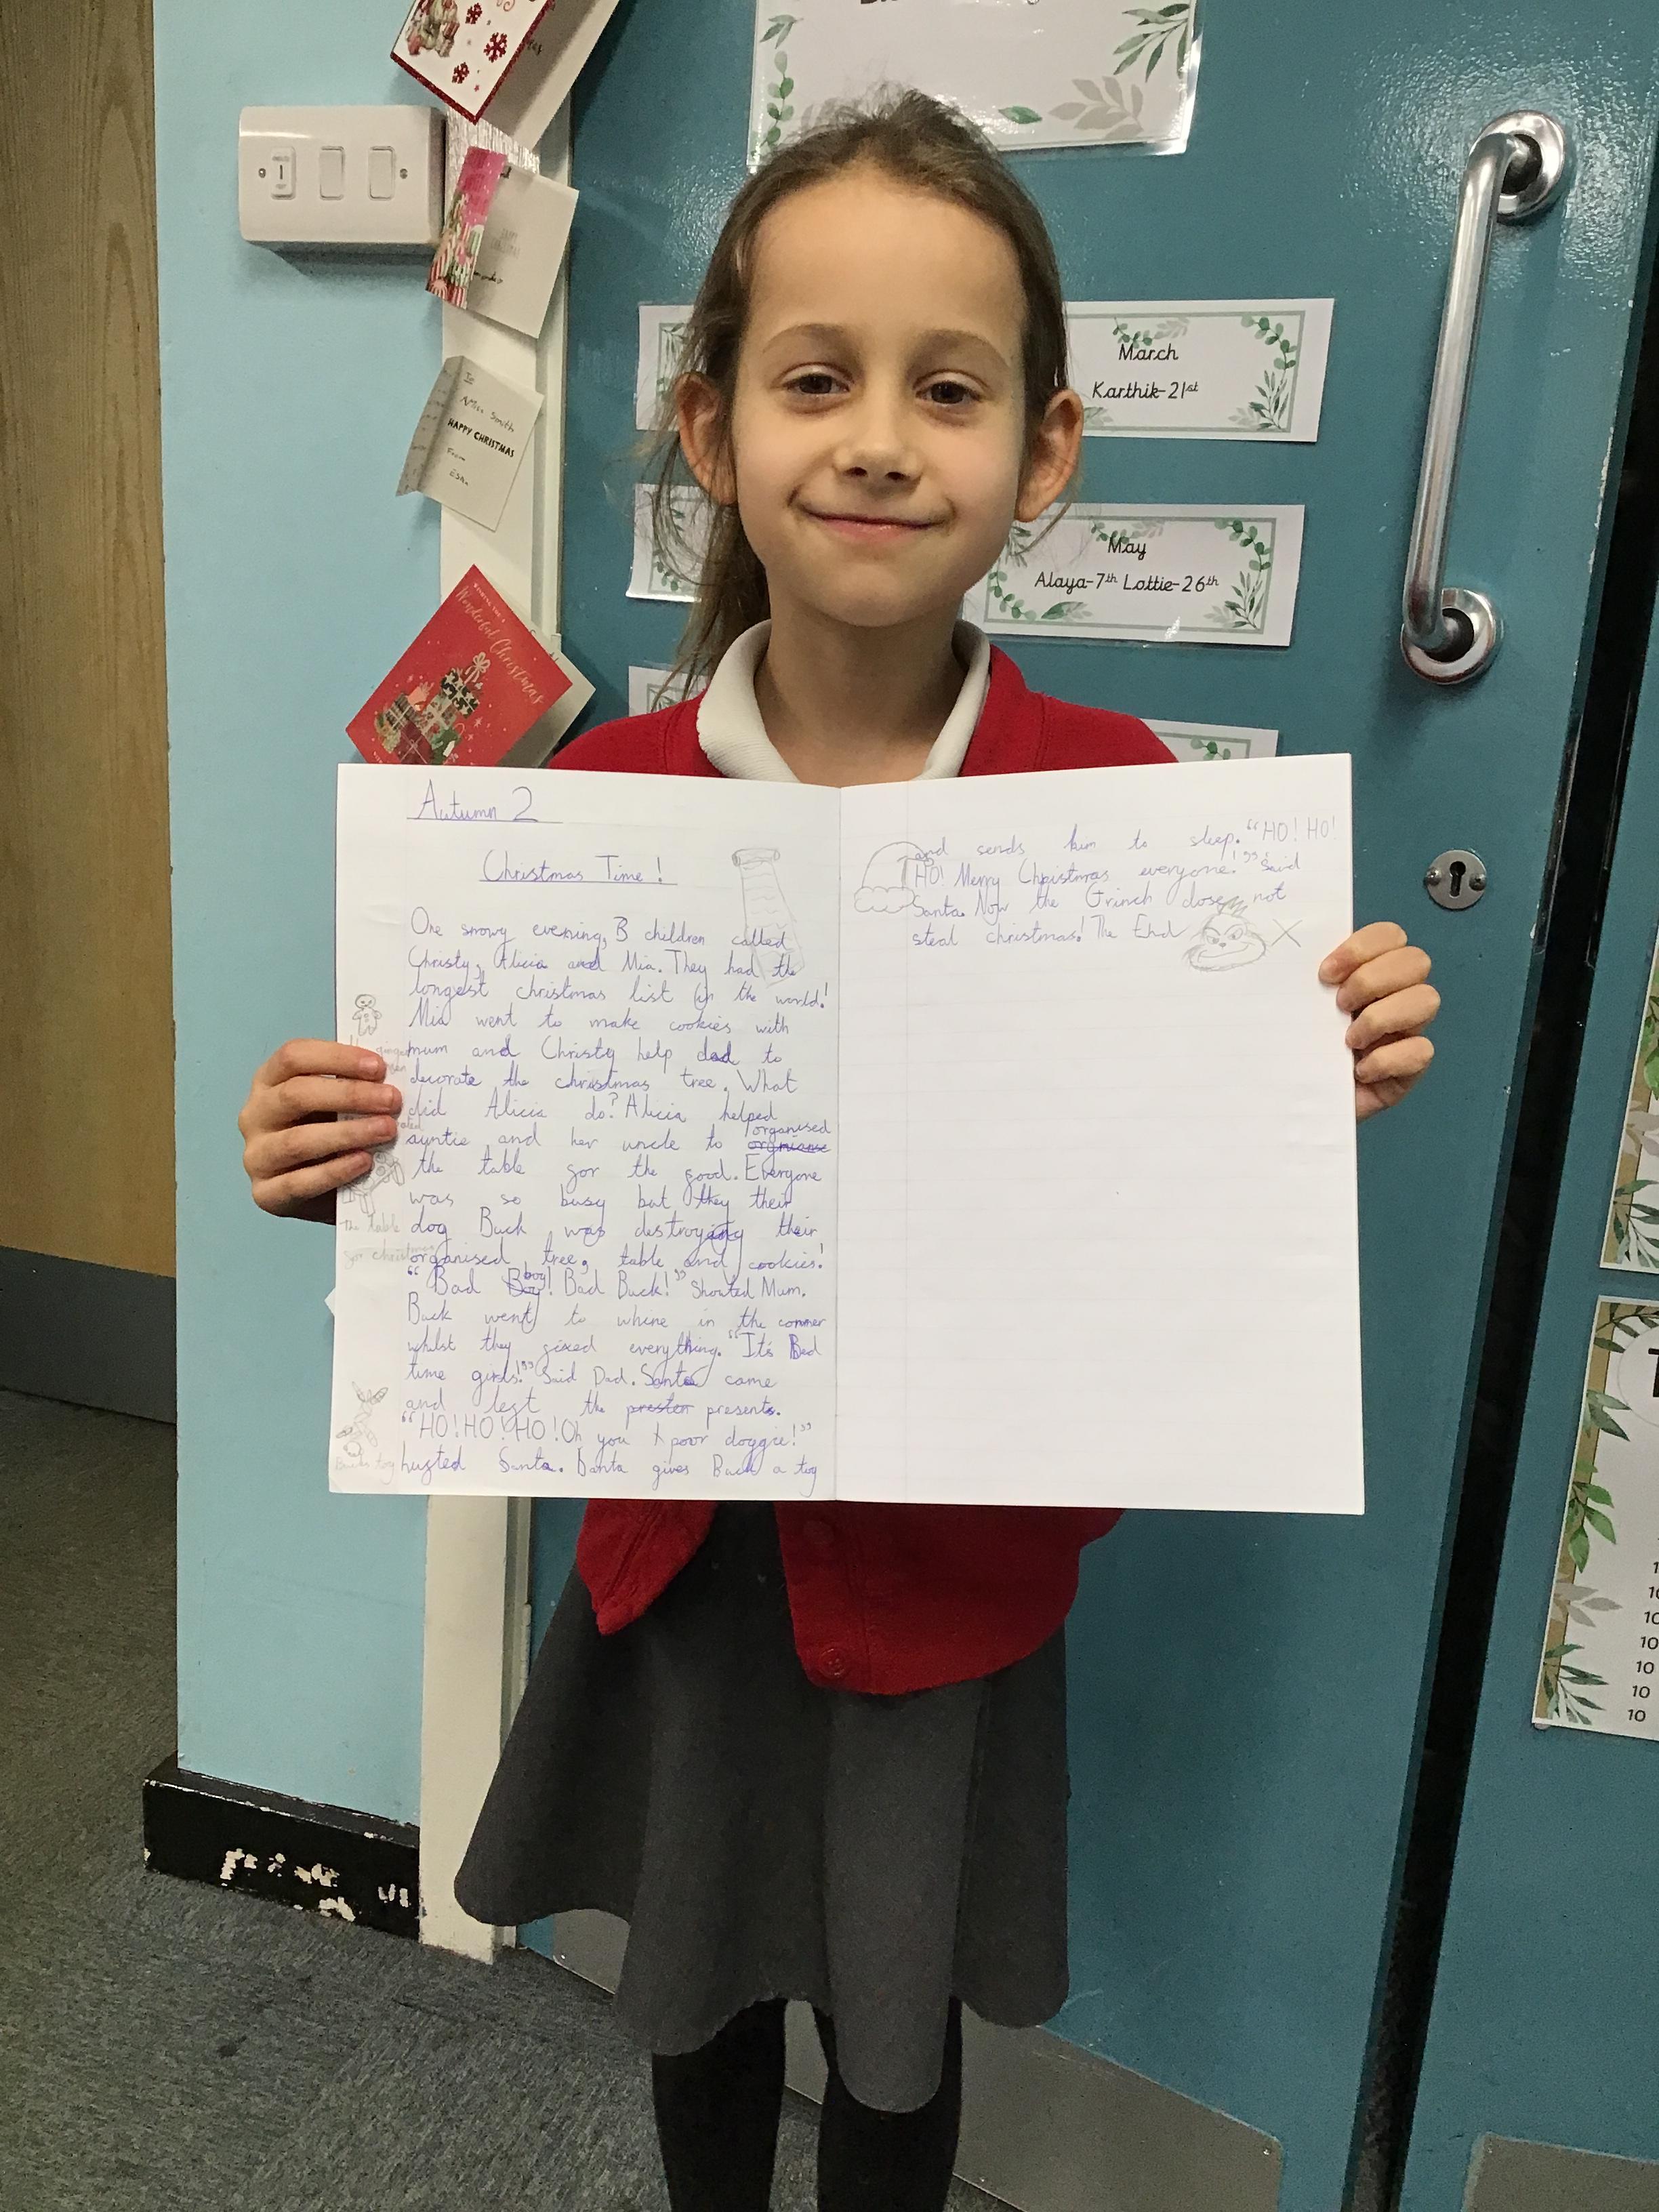 To
Miss Smith
HAPPY CHRISTMAS
From
Wonderful Christmas
March
Karthik-21st
May
Alaya-7th Lottie-26th
Autumn 2
Christmas Time!
One snowy evening, 3 children called
Christy, Alicia and Mia. They had the
longest christmas list in the world!
Mia went to make cookies with
mum and Christy help dad to
decorate the christmas tree. What
did Alicia do? Alicia helped
organised
auntie and her uncle to orgnianse
the table for the food. Everyone
was so busy but they their
dog Buck was destroying their
organised tree, table and cookies!
boy
"Bad Boy! Bad Buck!" Shouted Mum.
Buck went to whine in the corner
whilst they fixed everything. "It's Bed
time girls!" Said Dad. Santa came
and left the presten presents.
"HO! HO! HO! Oh you poor doggie!"
husted Santa. Santa gives Buck a toy
The table
for christmas
and sends him to sleep. "HO! HO!
HO! Merry Christmas everyone!" Said
Santa. Now the Grinch dose not
steal christmas! The End
10
10
10
10
10
10
10